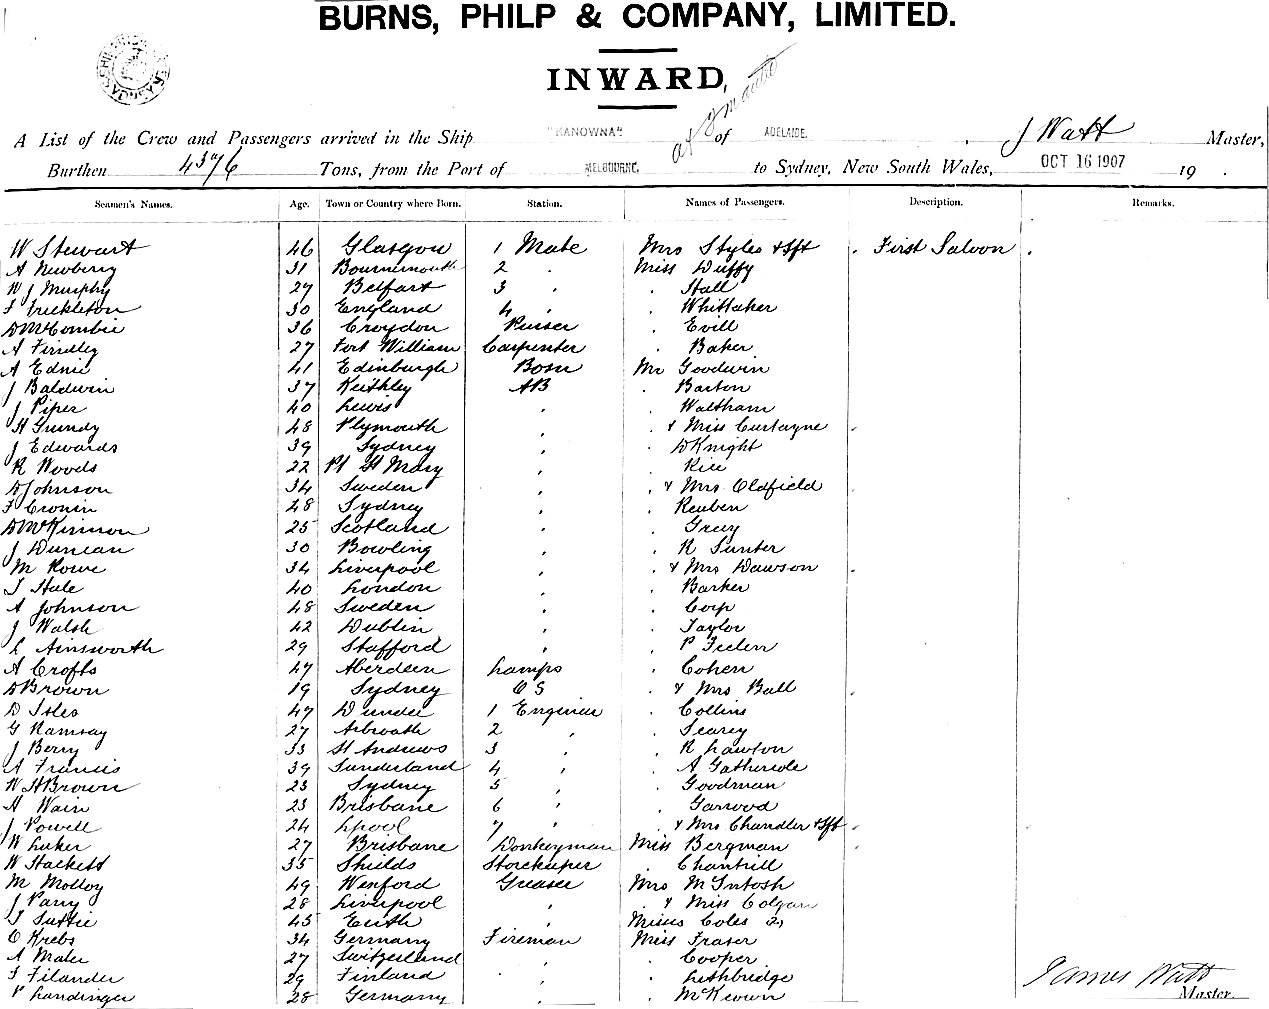 BURNS, PHILP & COMPANY, LIMITED.
INWARD,
A List of the Crew and Passengers arrived in the Ship "KANOWNA" of ADELAIDE. , J Watt Master,
Burthen Tons, from the Port of MELBOURNE, to Sydney, New South Wales, OCT 16 1907 19 .
Seamen's Names. Age. Town or Country where Born. Station. Names of Passengers. Description. Remarks.
W Stewart 46 Glasgow 1 Mate Mrs Styles & Sft First Saloon
A Newberry 31 Bournemouth 2 " Miss Duffy
W J Murphy 27 Belfast 3 " " Hall
F Trickleton 30 England 4 " " Whittaker
D McCombie 36 Croydon Purser " Evill
A Findley 27 Fort William Carpenter " Baker
A Ednie 41 Edinburgh Bosn Mr Goodwin
J Baldwin 37 Keithley AB " Barton
J Piper 40 Lewis " " Waltham
H Grundy 48 Plymouth " " & Miss Curtayne
J Edwards 39 Sydney " " D Knight
R Woods 22 Pt St Mary " " Rice
D Johnson 34 Sweden " " & Mrs Oldfield
F Cronin 48 Sydney " " Reuben
D McKinnon 25 Scotland " " Grey
J Duncan 30 Bowling " " R Sunter
M Rowe 34 Liverpool " " & Mrs Dawson
T Hale 40 London " " Barker
A Johnson 48 Sweden " " Corp
J Walsh 42 Dublin " " Taylor
L Ainsworth 29 Stafford " " P Feelen
A Crofts 47 Aberdeen Lamps " Cohen
D Brown 19 Sydney OS " & Mrs Ball
D Isles 47 Dundee 1 Engineer " Collins
G Ramsay 27 Arbroath 2 " " Searcy
J Berry 33 St Andrews 3 " " R Lawton
A Francis 39 Sunderland 4 " " A Gathercole
W H Brown 23 Sydney 5 " " Goodman
H Wain 23 Brisbane 6 " " Garrood
J Powell 24 Lpool 7 " " & Mrs Chandler & Sft
W Luker 27 Brisbane Donkeyman Miss Bergman
W Hackett 35 Shields Storekeeper " Chantrill
M Molloy 49 Wexford Greaser Mrs McIntosh
J Parry 28 Liverpool " " & Miss Colgan
T Suttie 45 Leith " Misses Coles (2)
C Krebs 34 Germany Fireman Miss Fraser
A Mater 27 Switzerland " " Cooper
F Filander 29 Finland " " Lethbridge
P Landinger 28 Germany " " McKeown
James Watt
Master.